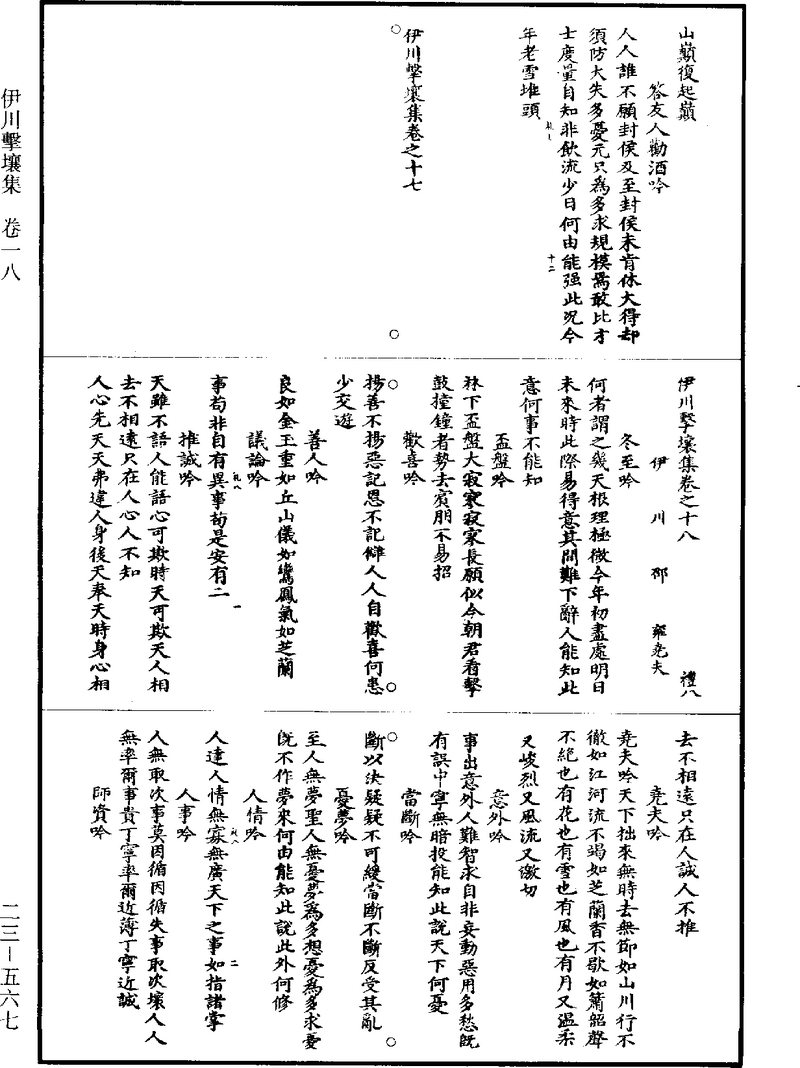 山巔復起巔
答友人勸酒吟
人人誰不願封侯及至封侯未肯休大得却
須防大失多憂元只為多求規模焉敢比才
士度量自知非飲流少日何由能强此況今
年老雪堆頭
伊川擊壤集卷之十七
伊川擊壤集卷之十八
禮八
伊川邵雍堯夫
冬至吟
何者謂之幾天根理極微今年初盡處明日
未來時此際易得意其間難下辭人能知此
意何事不能知
盃盤吟
林下盃盤大寂寥寂寥長願似今朝君看擊
鼓撞鐘者勢去賓朋不易招
歡喜吟
揚善不揚惡記恩不記讎人人自歡喜何患
少交遊
善人吟
良如金玉重如丘山儀如鸞鳳氣如芝蘭
議論吟
事苟非自有異事苟是安有二
推誠吟
天雖不語人能語心可欺時天可欺天人相
去不相遠只在人心人不知
人心先天天弗違人身後天奉天時身心相
去不相遠只在人誠人不推
堯夫吟
堯夫吟天下拙來無時去無節如山川行不
徹如江河流不竭如芝蘭香不歇如簫韶聲
不絕也有花也有雪也有風也有月又温柔
又峻烈又風流又激切
意外吟
事出意外人難智求自非妄動惡用多愁既
有誤中寧無暗投能知此說天下何憂
當斷吟
斷以決疑疑不可緩當斷不斷反受其亂
憂夢吟
至人無夢聖人無憂夢為多想憂為多求憂
既不作夢來何由能知此說此外何修
人情吟
人達人情無寡無廣天下之事如指諸掌
人事吟
人無取次事莫因循因循失事取次壞人人
無率爾事貴丁寧率爾近薄丁寧近誠
師資吟
伊川擊壤集　卷一八
二三－五六七